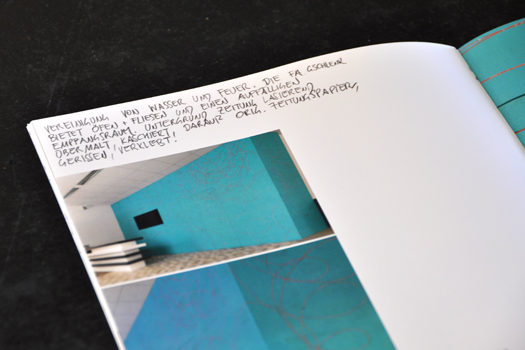 VEREINIGUNG VON WASSER UND FEUER. DIE FA GSCHLENR
BIETET ÖFEN + FLIESEN UND EINEN AUFFÄLLIGEN
EMPFANGSRAUM. UNTERGRUND ZEITUNG LASIEREND
ÜBERMALT, KASCHIERT, DARAUF ORIG. ZEITUNGSPAPIER,
GERISSEN, VERKLEBT.